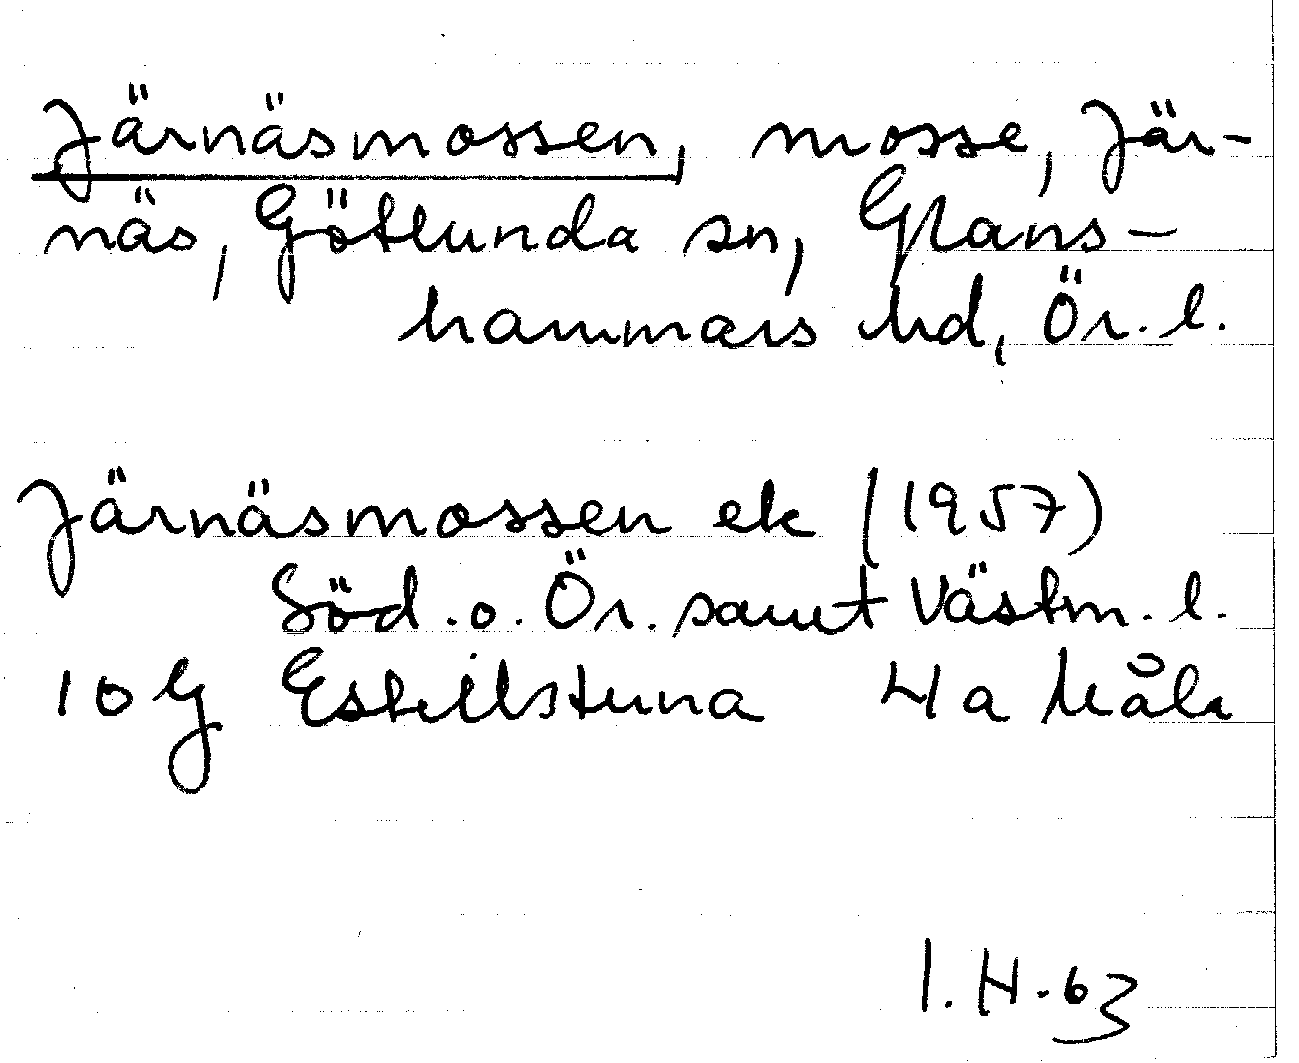 Järnäsmossen, mosse, Jär-
näs, Götlunda sn, Glans-
hammars hd, Ör. l.
Järnäsmossen ek (1957)
Söd. o. Ör. samt Västm. l.
10 G Eskilstuna 4 a Kåla
I. H. 63